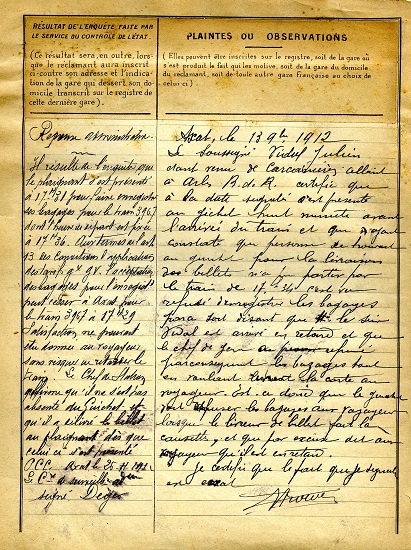 RÉSULTAT DE L'ENQUÊTE, FAITE PAR
LE SERVICE DU CONTRÔLE DE L'ÉTAT.
(Ce résultat sera, en outre, lors-
que le réclamant aura inscrit
ci-contre son adresse et l'indica-
tion de la gare qui dessert son do-
micile transcrit sur le registre de
cette dernière gare).
PLAINTES OU OBSERVATIONS
(Elles peuvent être inscrites sur le registre, soit de la gare où
s'est produit le fait qui les motive, soit de la gare du domicile
du réclamant, soit de toute autre gare française au choix de
celui-ci)
Réponse administrative
Il résulte de l'enquête que
le plaignant s'est présenté
à 17h31 pour faire enregistrer
ses bagages pour le train 3967
dont l'heure de départ est fixée
à 17h36. Aux termes de l'art
13 des Conditions d'application
l'acceptation
des bagages pour l'enregistrement
peut cesser à Axat pour
le train 3967 à 17h29
Satisfaction ne pouvait
être donnée au voyageur
sans risque de retarder le
train. Le Chef de Station
affirme qu'il ne s'est pas
absenté du Guichet et
qu'il a délivré le billet
au plaignant dès que
celui ci s'est présenté
P.C.C. Axat le 25-11-1912
Le Cre de surveillance
signé Déger
Axat, le 13 9bre 1912
Le Soussigné Vidal Julien
dant venu de Carcanières allant
à Arles B. d. R. certifie que
à la date susdite s'est présenté
au guichet huit minutes avant
l'arrivée du train et que voyant
constaté que personne se trouvait
au guichet pour la livraison
des billets n'a pu partir par
le train de 17h34 c'est vu
refusé d'enregistrer les bagages
para soit disant que le sieur
Vidal est arrivé en retard et que
le chef de gare a refusé
parconsequent les bagages tout
en rendant la carte au
voyageur. Est-ce donc que le
peut refuser les bagages aux voyageurs
lorsque le livreur de billet fait la
causette, et que par excuse dit aux
voyageur qu'il est en retard.
Je certifie que le fait que je signale
est exat